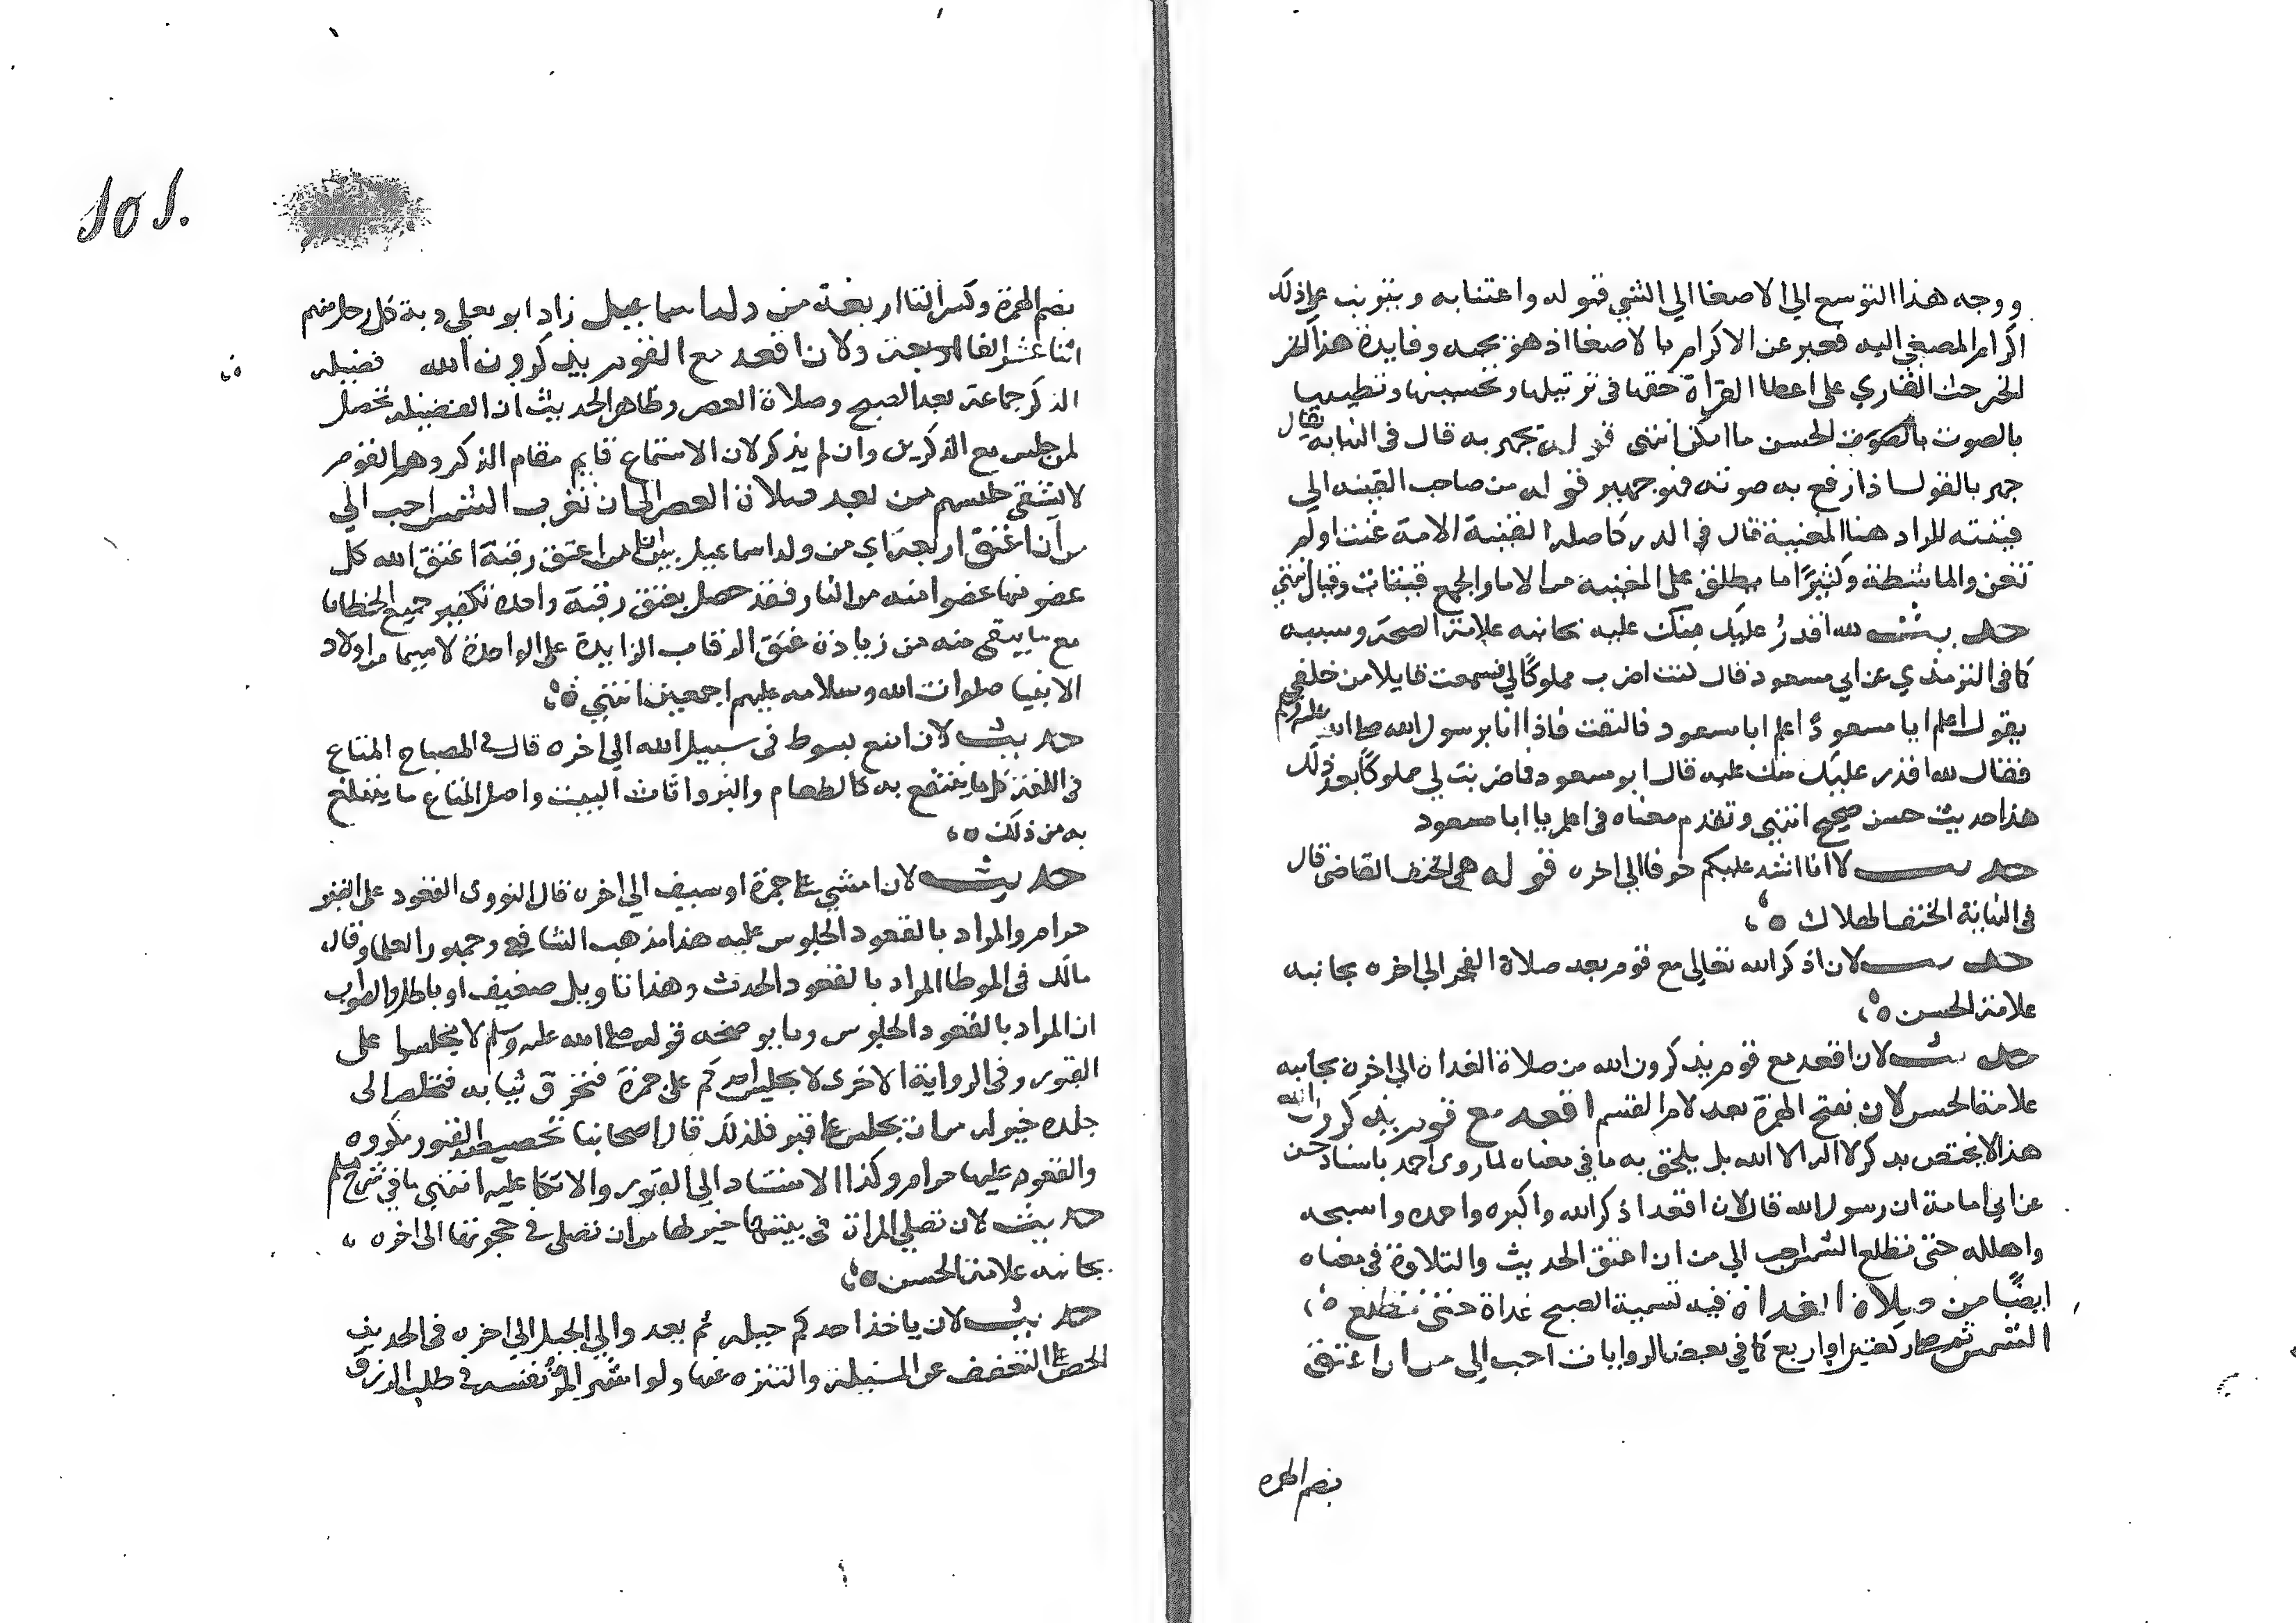 ووجه هذا التوسع الي الاصغا الي الشي قبوله واعتنا به ويترتب علي ذلك
اكرام المصغي اليه فعبر عن الاكرام بالاصغا اذ هو يجبه وفايدة هذا الخبر
الخبر حث القاري علي اعطا القراة حقها في ترتيلها وتحسينها وتطييبها
بالصوت بالصوت الحسن ما امكن انتهي قوله يجهر به قال في النهاية يقال
جهر بالقول اذا رفع به صوته فهو جهير قوله من صاحب القينه الي
قينته المراد هنا المغنية قال في الدر كاصله القينة الامة غنت او لم
تغن والماشطة وكثيرًا ما يطلق علي المغنية من الاما والجمع قينات وقيان انتهي
حديث لله اقدرُ عليك منك عليه بجانبه علامة الصحة وسببه
كما في الترمذي عن ابي مسعود قال كنت اضرب مملوكًا لي فسمعت قايلا من خلفي
يقول اعلم ابا مسعود اعلم ابا مسعود فالتفت فاذا انا برسول الله صلي الله عليه وسلم
فقال لله اقدر عليك منك عليه قال ابو مسعود فما ضربت لي مملوكًا بعد ذلك
هذا حديث حسن صحيح انتهي وتقدم معناه في اعلم يا ابا مسعود
حديث لانا اشد عليكم خوفا الي اخره قوله هي الحتف القاضي قال
في النهاية الحتف الهلاك ٥
حديث لان اذكر الله تعالي مع قوم بعد صلاة الفجر الي اخره بجانبه
علامة الحسن ٥
حديث لان اقعد مع قوم يذكرون الله من صلاة الغداة الي اخره بجانبه
علامة الحسن لان بفتح الهمزة بعد لام القسم اقعد مع قوم يذكرون الله
هذا لا يختص بذكر لا اله الا الله بل يلحق به ما في معناه لما روي احمد باسناد حسن
عن ابي امامة ان رسول الله قال لان اقعد اذكر الله واكبره واحمده واسبحه
واهلله حتى تطلع الشمس احب الي من ان اعتق الحديث والتلاوة في معناه
ايضًا من صلاة الغداة فيه تسمية الصبح غداة حتى تطلع ٥
الشمس ثم صلي ركعتين او اربع كما في بعض الروايات احب الي من ان اعتق
بضم الهمزه
101.
بضم الهمزة وكسر التا اربعة من ولد اسماعيل زاد ابو يعلي دية كل رجل منهم
اثنا عشر الفا اربعة ولان اقعد مع القوم يذكرون الله فضيله
الذكر جماعة بعد الصبح وصلاة العصر وظاهر الحديث ان الفضيلة تحصل
لمن جلس مع الذاكرين وان لم يذكر لان الاستماع قايم مقام الذكر وهم القوم
لا يشقي جليسهم من بعد صلاة العصر الي ان تغرب الشمس احب الي
من ان اعتق اربعة اي من ولد اسماعيل من اعتق رقبة اعتق الله كل
عضو منها عضوا منه من النار فقد حصل بعتق رقبة واحدة تكفير جميع الخطايا
مع ما يبقي منه من زيادة عتق الرقاب الزايدة علي الواحدة لا سيما من اولاد
الانبيا صلوات الله وسلامه عليهم اجمعين انتهي ٥
حديث لان امتع بسوط في سبيل الله الي اخره قال في المصباح المتاع
في اللغة كل ما ينتفع به كالطعام والبز واثاث البيت واصل المتاع ما يتبلغ
به من ذلك ٥
حديث لان امشي علي جمرة او سيف الي اخره قال النووي القعود علي القبر
حرام والمراد بالقعود الجلوس عليه هذا مذهب الشافعي وجمهور العلما وقال
مالك في الموطا المراد بالقعود الحدث وهذا تاويل ضعيف او باطل والصواب
ان المراد بالقعود الجلوس ومما يوضحه قوله صلي الله عليه وسلم لا تجلسوا على
القبور وفي الرواية الاخرى لا يجلس احدكم على جمرة فتخرق ثيابه فتخلص الى
جلده خير له من ان يجلس علي قبر فلذلك قال اصحابنا تجصيص القبور مكروه
والقعود عليها حرام وكذا الاستناد الي القبور والاتكا عليه انتهي ما في شرح مسلم
حديث لان تصلي المراة في بيتها خير لها من ان تصلي في حجرتها الى اخره
بجانبه علامة الحسن ٥
حديث لان ياخذ احدكم حبله ثم يغدو الي الجبل الي اخره في الحديث
الحض علي التعفف عن المسيلة والتنزه عنها ولو امتهن المرء نفسه في طلب الرزق